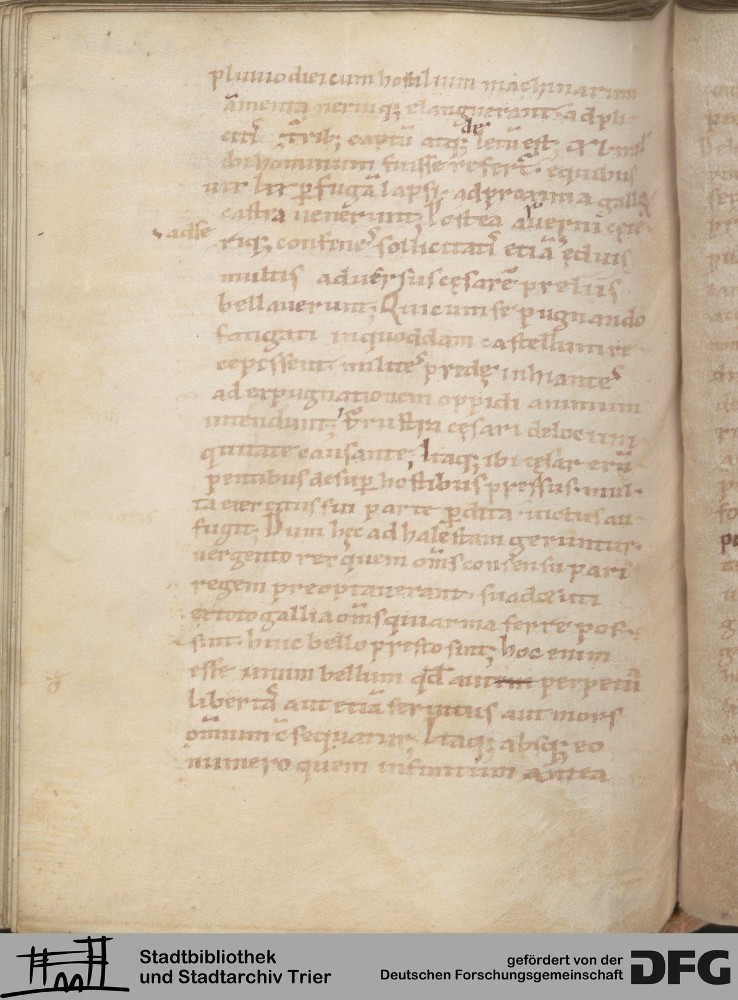 pluuio die. cum hostilium machinarum
ãmenta neruiq; elanguerant. ad pli
trib; captũ atq; de letũ est, XL mil
bi hominum fuisse refert̃. e quibus
uix perfugã lapsi. ad proxima gallo
castra uenerunt; Postea aruerni cete
adse
riq; confineˢ sollicitatˢ etiã ęduis
multis aduersus cęsarẽ preliis
bellauerunt; Qui cum se pugnando
fatigati in quoddam castellum re
cepissent. militeˢ prędę inhianteˢ
ad expugnationem oppidi animum
intendunt; Frustra cęsari de loci ini
quitate causante; Itaq; ibi cęsar erũ
pentibus desup hostibus pressus. mul
ta exercitus sui parte p̱dita. uictus au
fugit; Dum hęc ad halestam geruntur.
uergento rex quem om̃s consensu pari
regem preoptauerant. suadet uti
ex toto gallia om̃s qui arma ferre pos
sunt. hinc bello presto sint; hoc enim
esse unum bellum qd̃ aut perpetuã
libertã aut etiã seruitus aut mors
om̃ium c̃sequatur. Itaq; absq; eo
numero quem infinitum antea
Stadtbibliothek
und Stadtarchiv Trier
gefördert von der
Deutschen Forschungsgemeinschaft
DFG